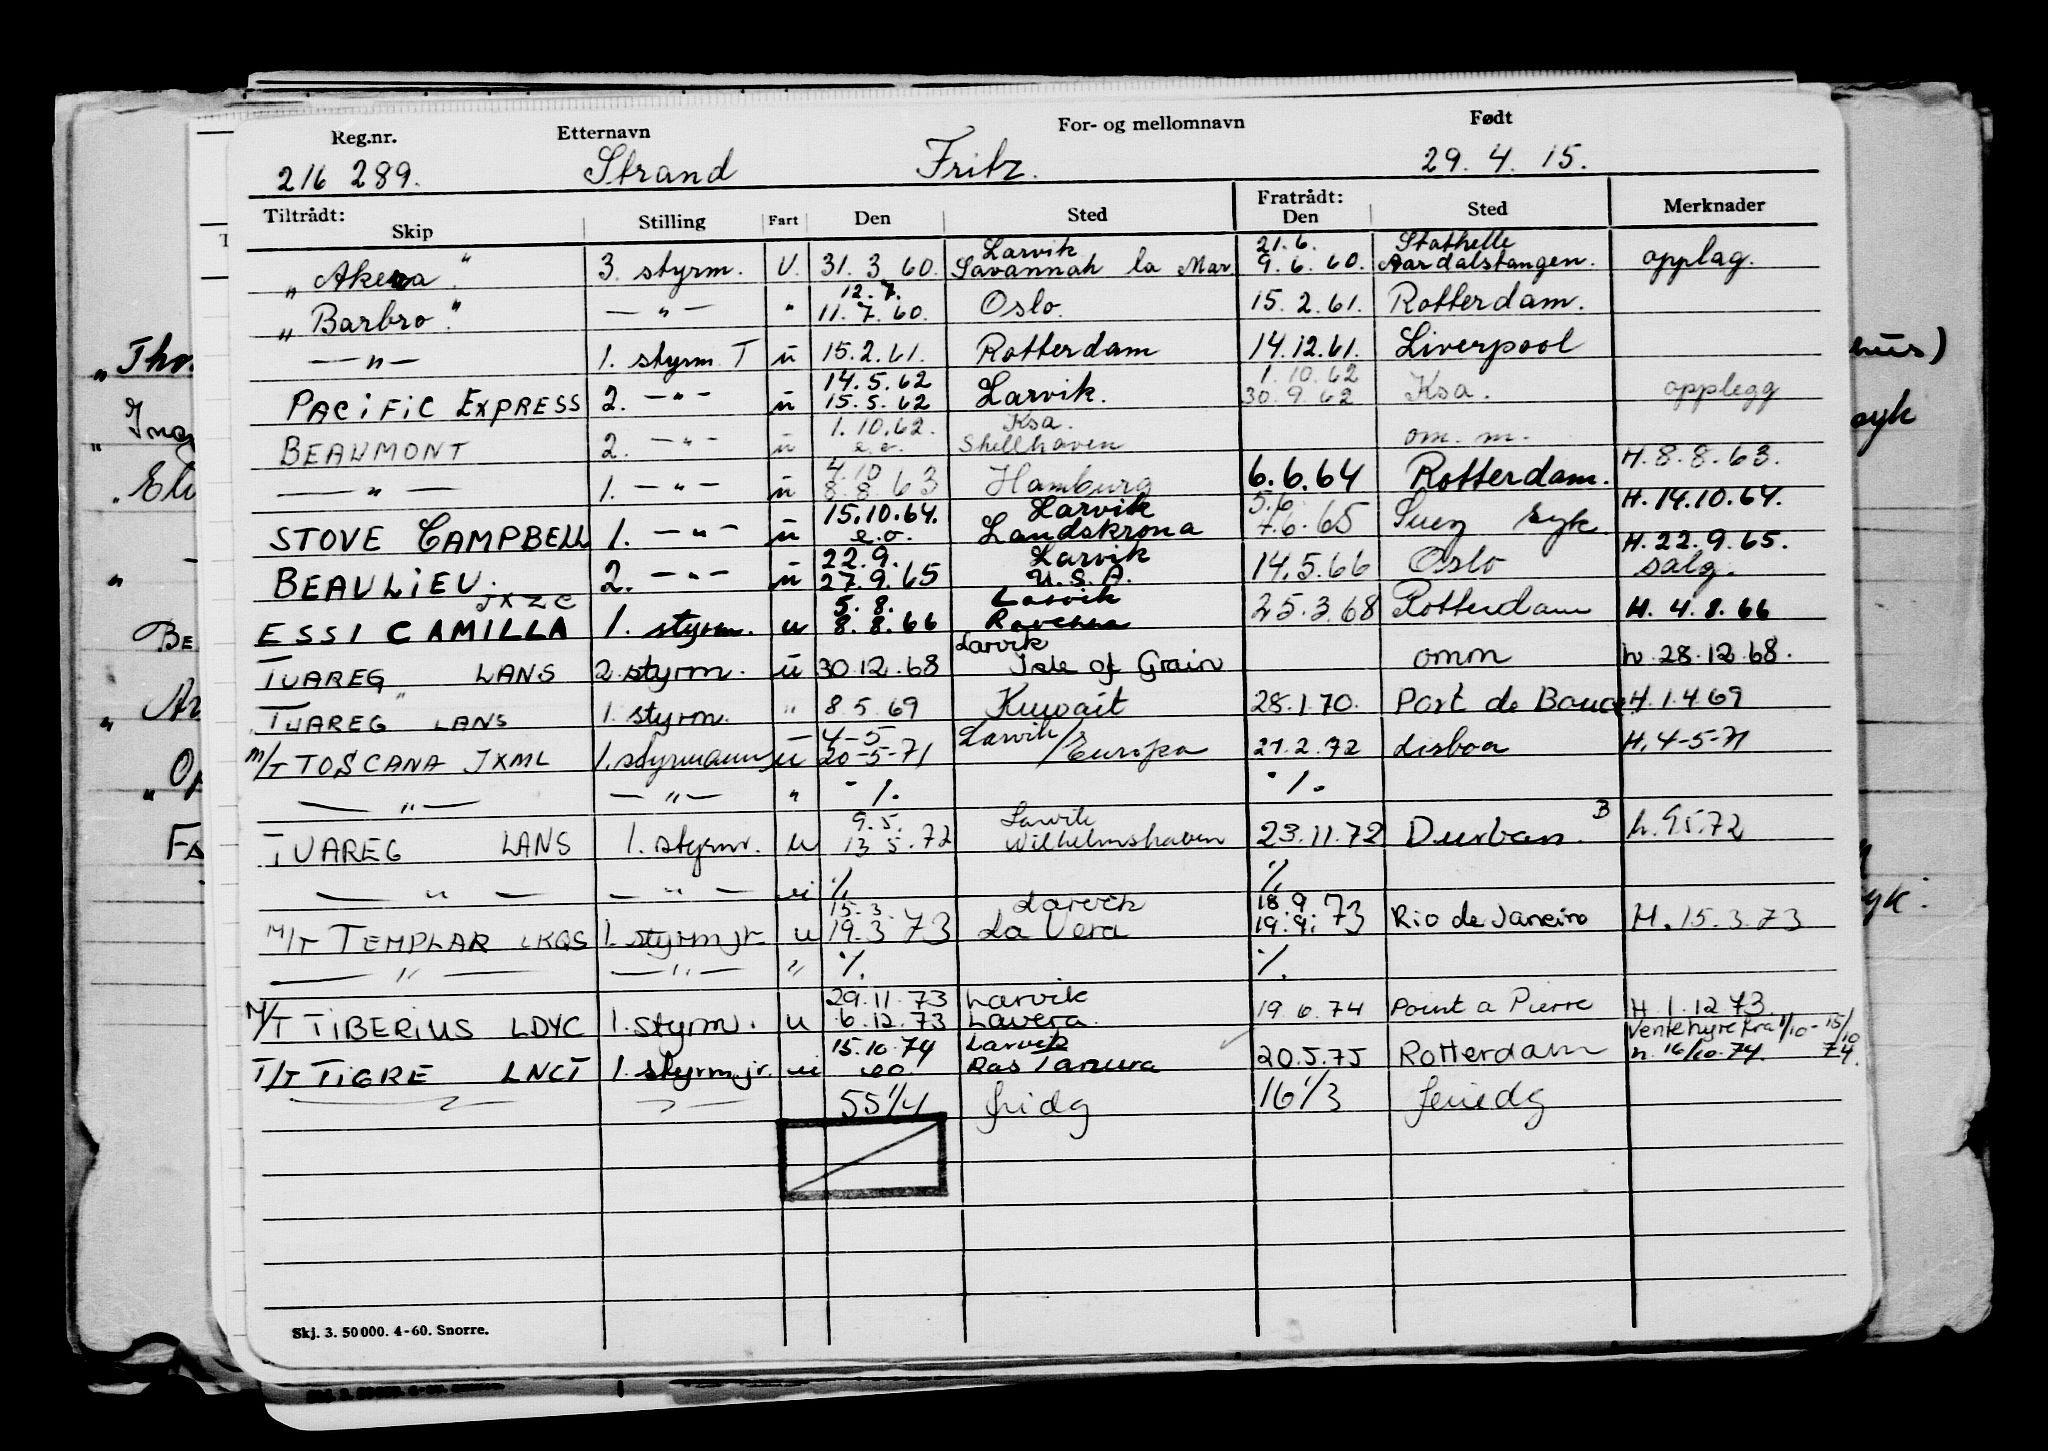 Reg.nr. Etternavn For- og mellomnavn Født
216 289. Strand Fritz. 29. 4. 15.
Tiltrådt: Fratrådt:
Skip Stilling Fart Den Sted Den Sted Merknader
Larvik 21.6. Stathelle
"Akera" 3. styrm. U. 31. 3. 60. Savannah la Mar 9. 6. 60. Aardalstangen. opplag.
12. 7.
"Barbro" — " — " 11. 7. 60. Oslo. 15. 2. 61. Rotterdam.
— " — 1. styrm. T u 15. 2. 61. Rotterdam 14.12.61. Liverpool
14. 5. 62 1. 10. 62
PACIFIC EXPRESS 2. — " — u 15. 5. 62 Larvik. 30. 9. 62 Ksa. opplegg
1. 10. 62. Ksa.
BEAUMONT 2. — " — u e.o. Shellhaven om. m.
4.10 H. 8. 8. 63.
— " — 1. — " — u 8. 8. 63 Hamburg 6.6.64 Rotterdam.
15.10.64. Larvik 5.6 H. 14.10.64.
STOVE CAMPBELL 1. — " — u e.o. Landskrona 7.6.65 Suez syk
22.9. Larvik H. 22. 9. 65.
BEAULIEU. 2. — " — u 27.9.65 U.S.A. 14.5.66 Oslo salg.
JXZC 5. 8. Larvik
ESSI CAMILLA 1. styrm. u 8. 8. 66 Ravenna 25.3.68 Rotterdam H. 4. 8. 66
Larvik
TUAREG LANS 2. styrm. u 30.12.68 Isle of Grain omm h. 28.12.68.
TUAREG LANS 1. styrm. " 8. 5. 69 Kuwait 28.1.70. Port de Bouc H. 1.4.69
4-5 Larvik/
M/T TOSCANA JXML 1. styrmann u 20-5-71 Europa 27.2.72 Lisboa H. 4-5-71
— " — — " — " ·/. ·/.
9.5. Larvik B
TUAREG LANS 1. styrm. u 13.5.72 Wilhelmshaven 23.11.72 Durban. h. 9.5.72
— " — — " — u ·/. ·/.
15.3. Larvik 18.9
M/T TEMPLAR LKQS 1. styrm jr. u 19.3 73 La Vera 19.9. 73 Rio de Janeiro H. 15. 3. 73
— " — — " — " ·/. ·/.
29.11.73 Larvik
M/T TIBERIUS LDYC 1. styrm. u 6.12.73 Lavera. 19 6. 74 Point a Pierre H. 1. 12 73.
15.10.74 Larvik Ventehyre fra 1/10 - 15/10 74.
T/T TIGRE LNCT 1. styrm jr. u eo. Ras Tanura 20.5.75 Rotterdam h. 16/10.74.
55 1/4 fridg 16 1/3 feriedg
Skj. 3. 50 000. 4-60. Snorre.
"Tho
hus)
"Ing
syk
"
BE
" Ar
" Op
yk.